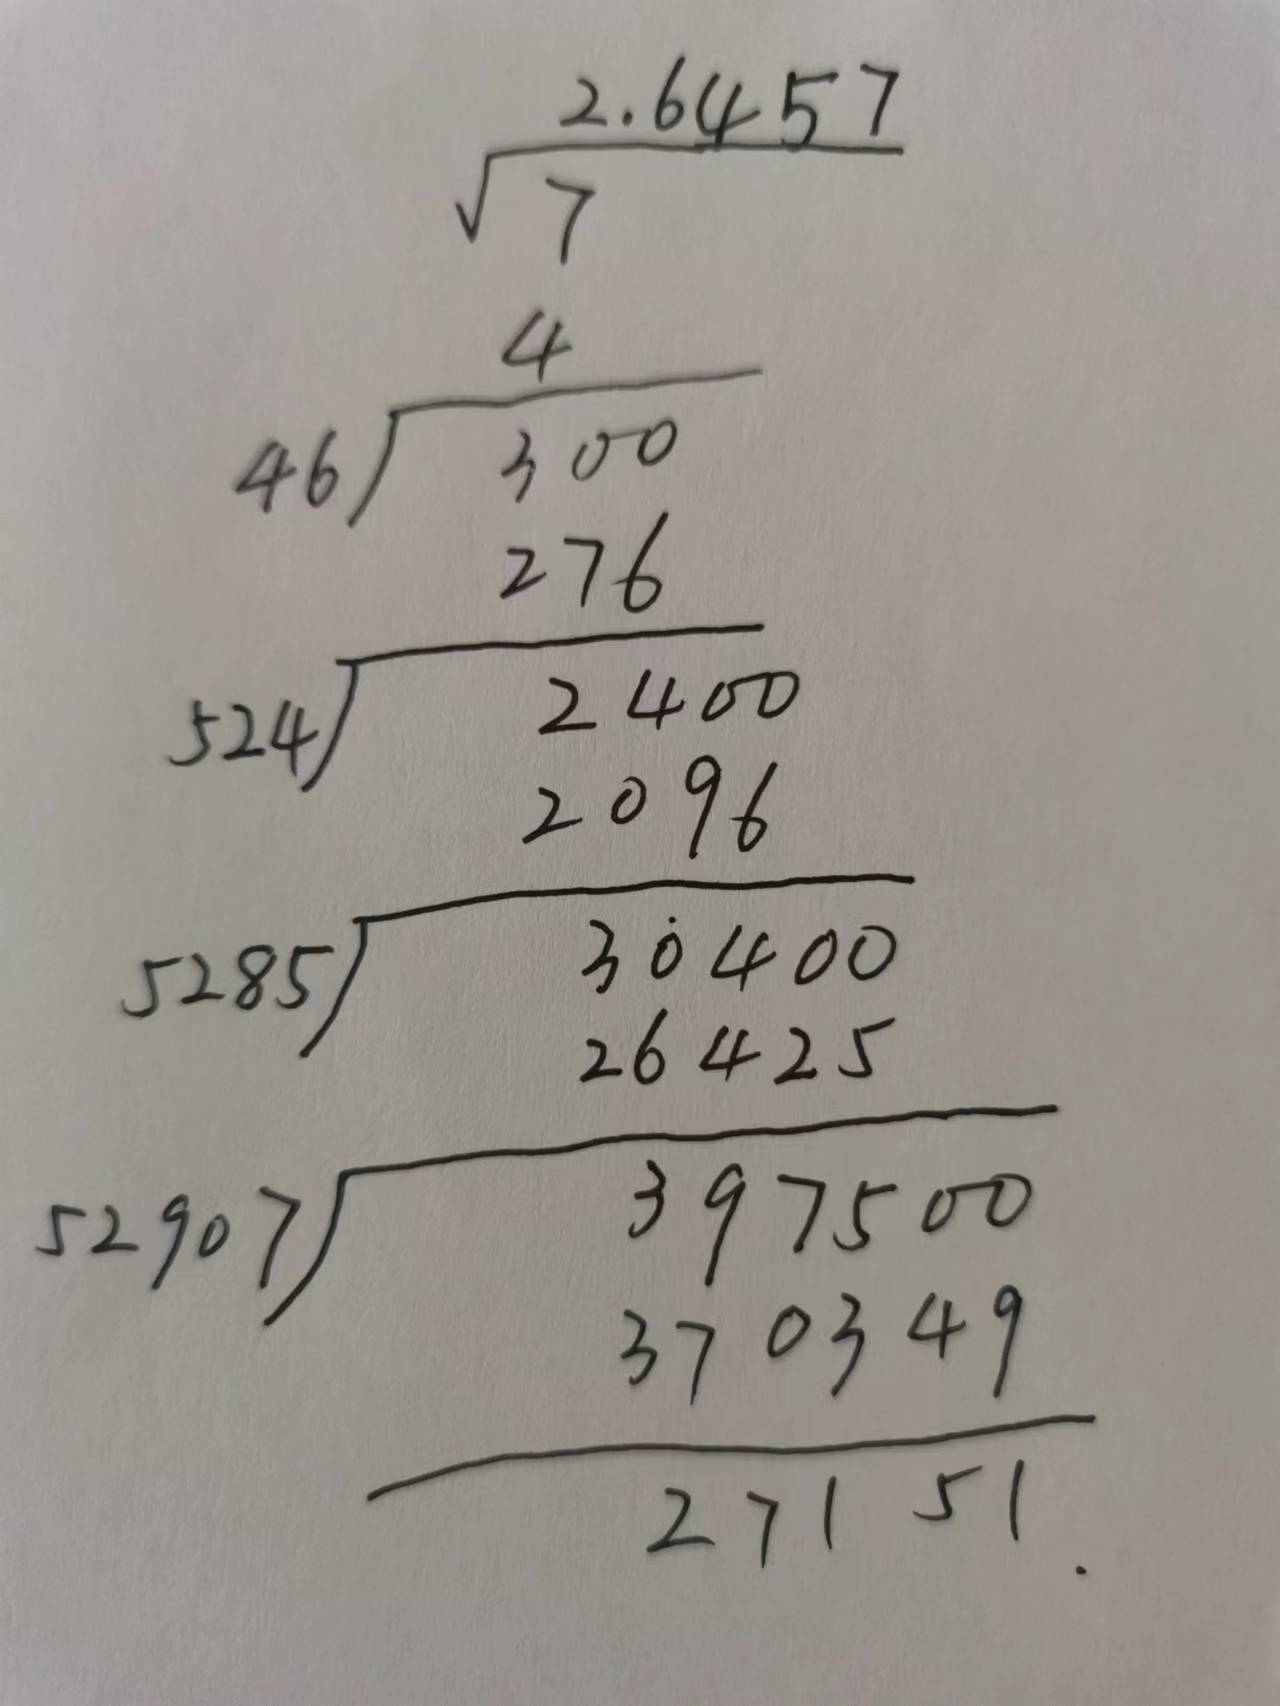 2.6457
√7
4
46 300
276
524 2400
2096
5285 30400
26425
52907 397500
370349
27151.